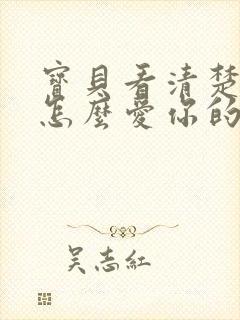 寶貝看清楚
怎麼愛你的
吴志紅